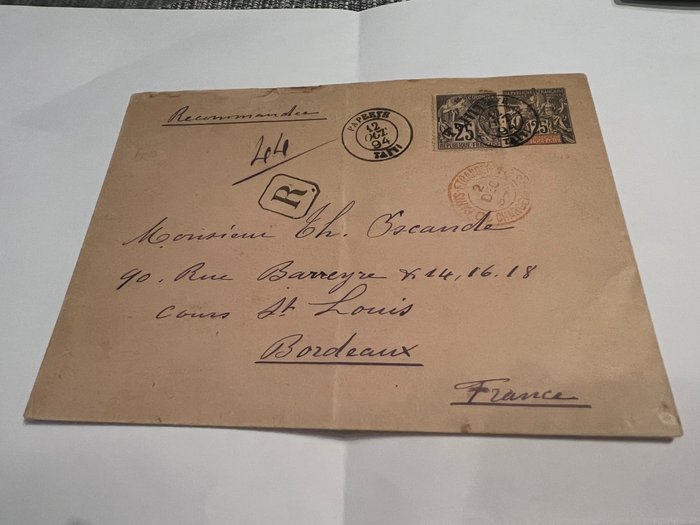 Recommandée
44
R
PAPEETE
12
OCT
94
TAITI
25
25
PARIS ETRANGER
2
DEC
Monsieur Th. Escande
90. Rue Barreyre & 14, 16. 18
Cours St Louis
Bordeaux
France